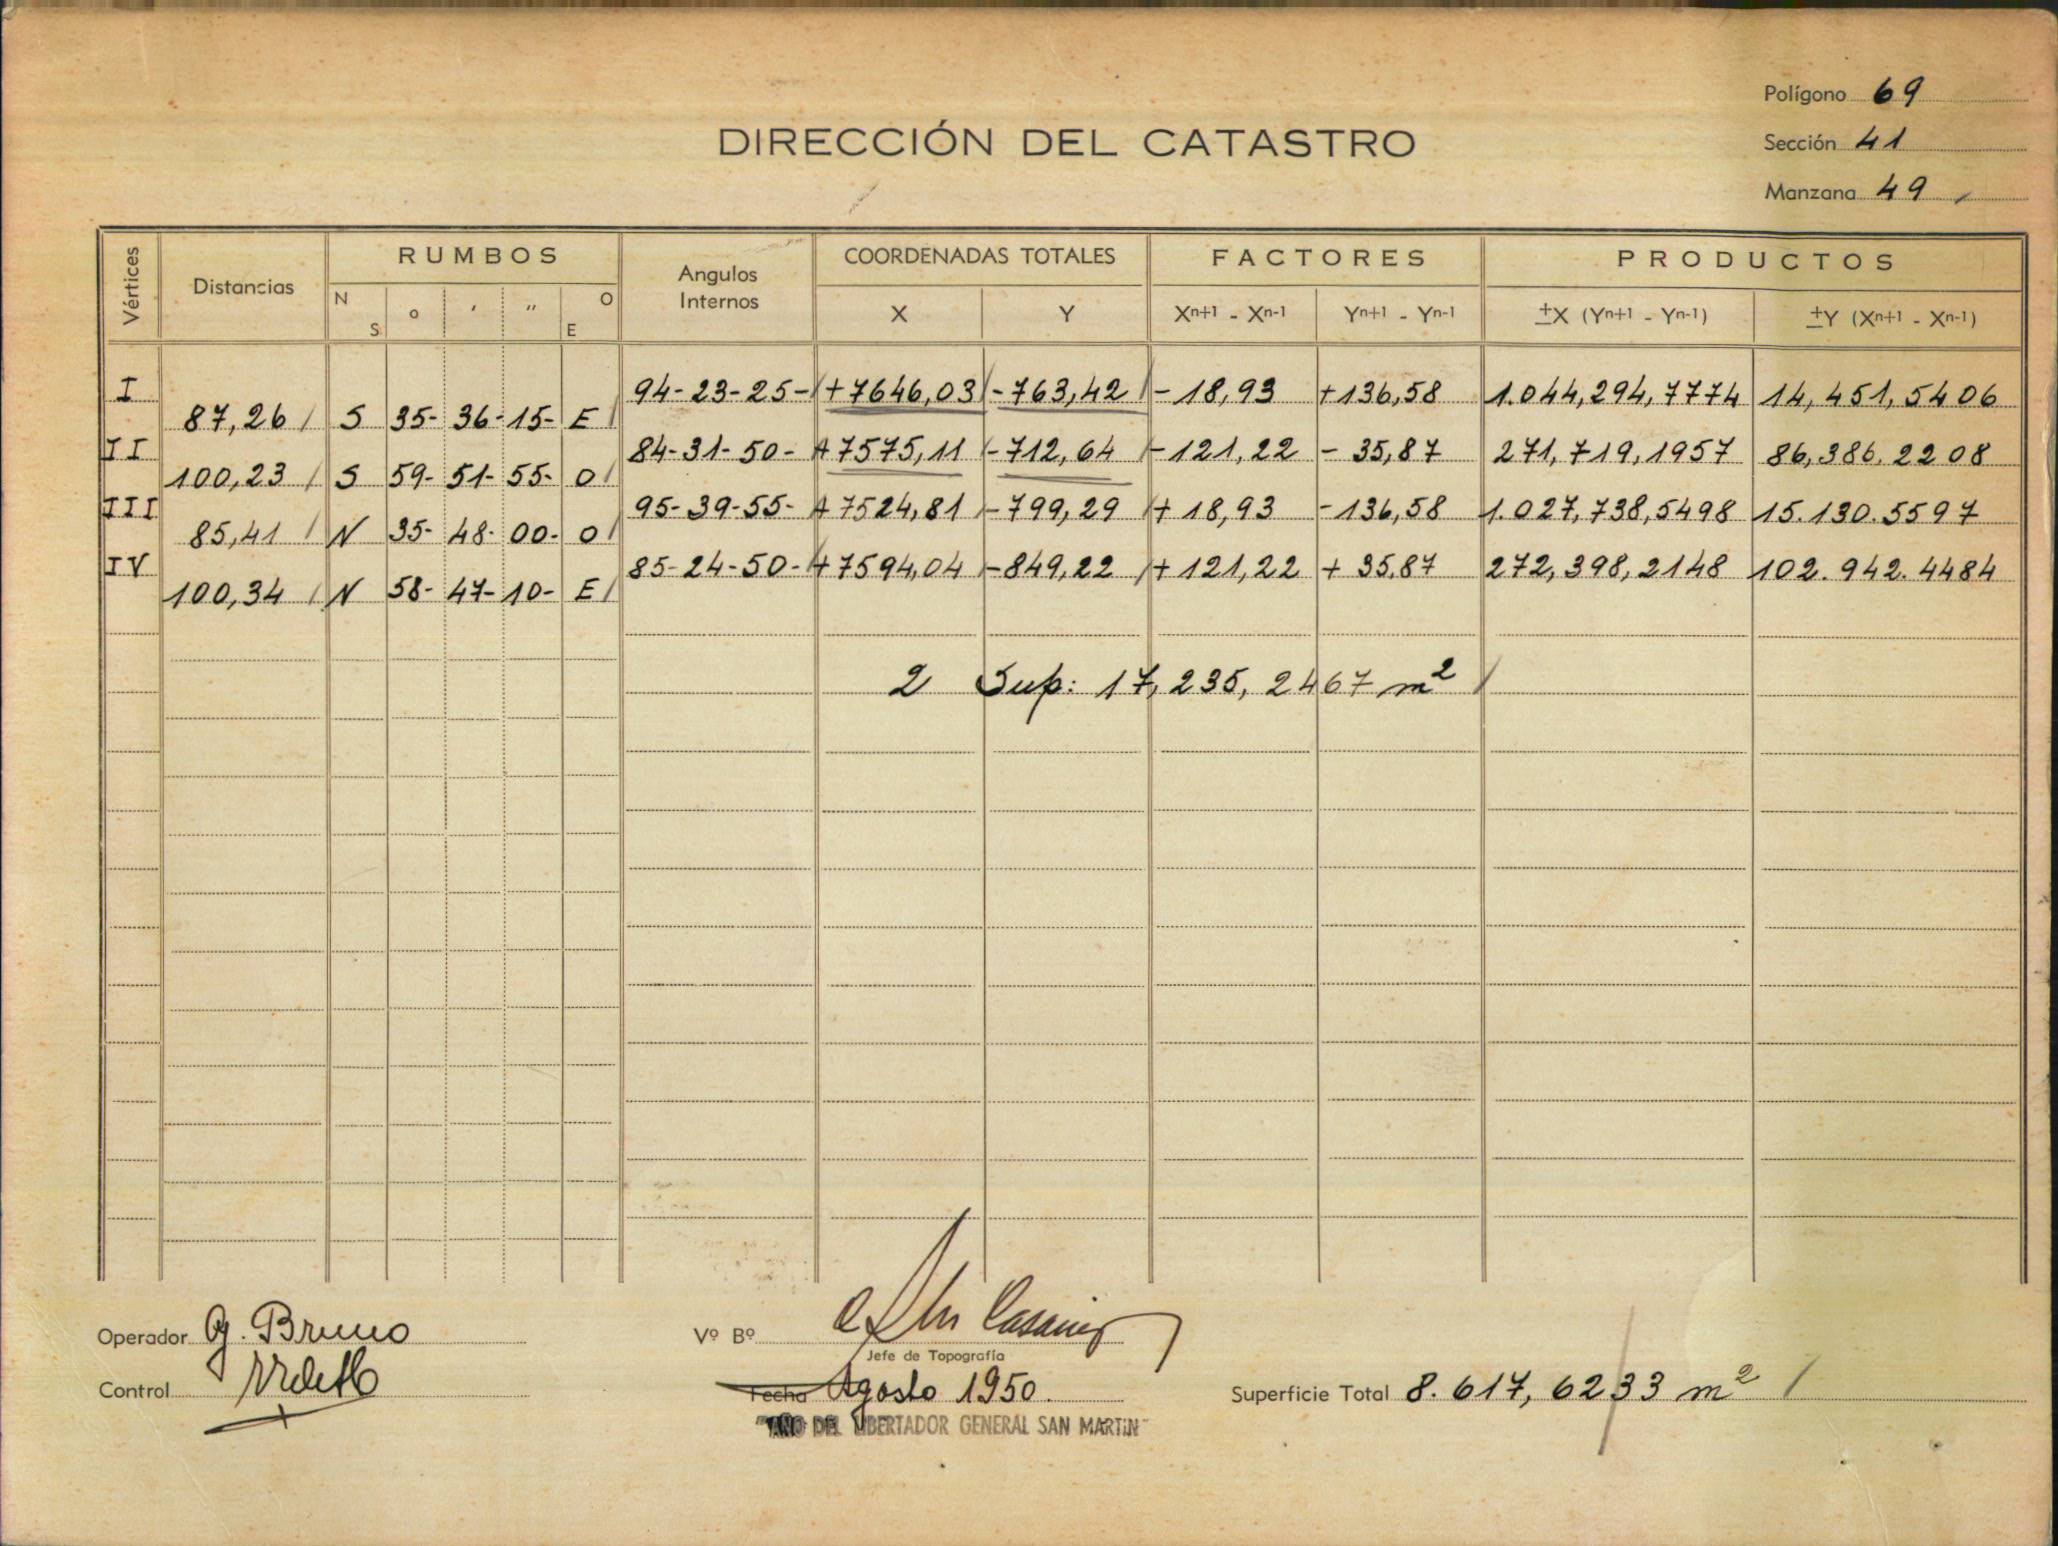 Polígono 69
DIRECCIÓN DEL CATASTRO
Sección 41
Manzana 49
Vértices Distancias RUMBOS Angulos Internos COORDENADAS TOTALES FACTORES PRODUCTOS
N S o ′ ″ O E X Y Xn+1 - Xn-1 Yn+1 - Yn-1 ±X (Yn+1 - Yn-1) ±Y (Xn+1 - Xn-1)
I 94-23-25- +7646,03 -763,42 -18,93 +136,58 1.044,294,7774 14,451,5406
87,26 S 35- 36- 15- E
II 84-31-50- +7575,11 -712,64 -121,22 - 35,87 271,719,1957 86,386,2208
100,23 S 59- 51- 55- O
III 95-39-55- +7524,81 -799,29 + 18,93 -136,58 1.027,738,5498 15.130.5597
85,41 N 35- 48- 00- O
IV 85-24-50- +7594,04 -849,22 + 121,22 + 35,87 272,398,2148 102.942.4484
100,34 N 58- 47- 10- E
2 Sup: 17,235,2467 m²
Operador G. Bruno
Vº Bº
Jefe de Topografía
Control
Fecha Agosto 1950.
Superficie Total 8.617,6233 m²
"AÑO DEL LIBERTADOR GENERAL SAN MARTIN"